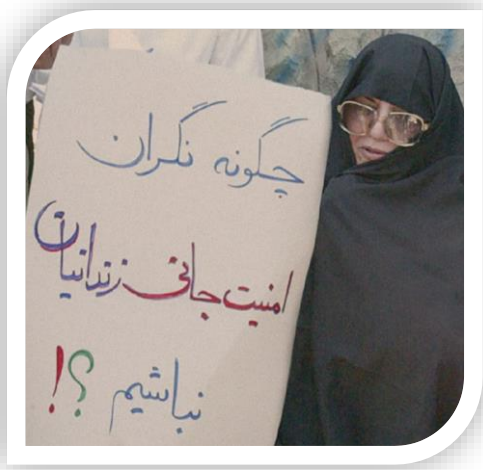 چگونه نگران
امنیت جانی زندانیان
نباشیم ؟!